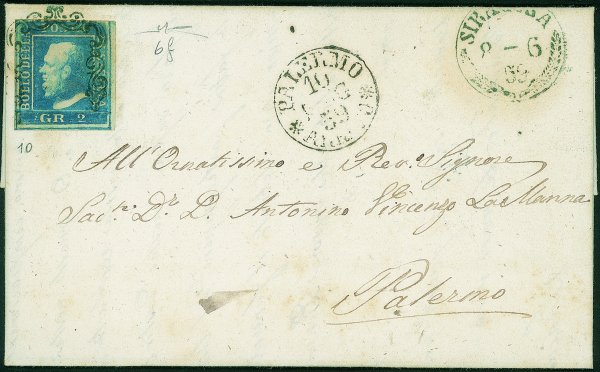 BOLLO DELLA
GR 2
6f
10
PALERMO
10
59
SIRACUSA
2 - 6
All'Ornatissimo e Rev. Signore
Sac.te Dr. D. Antonino Vincenzo La Manna
Palermo